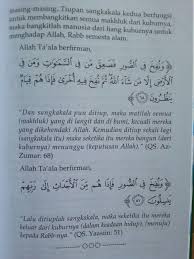 masing-masing. Tiupan sangkakala kedua berfungsi
untuk membangkitkan semua makhluk dari kuburnya,
maka bangkitlah manusia dari liang kuburnya untuk
menghadap Allah, Rabb semesta alam.
Allah Ta'ala berfirman,
وَنُفِخَ فِي الصُّورِ فَصَعِقَ مَنْ فِي السَّمَاوَاتِ وَمَنْ فِي
الْأَرْضِ إِلَّا مَنْ شَاءَ اللَّهُ ثُمَّ نُفِخَ فِيهِ أُخْرَى فَإِذَا هُمْ قِيَامٌ
يَنْظُرُونَ (٦٨)
"Dan sangkakala pun ditiup, maka matilah semua
(makhluk) yang di langit dan di bumi, kecuali mereka
yang dikehendaki Allah. Kemudian ditiup sekali lagi
(sangkakala itu) maka seketika itu mereka bangun (dari
kuburnya) menunggu (keputusan Allah)." (QS. Az-
Zumar: 68)
Allah Ta'ala berfirman,
وَنُفِخَ فِي الصُّورِ فَإِذَا هُمْ مِنَ الْأَجْدَاثِ إِلَى رَبِّهِمْ
يَنْسِلُونَ (٥١)
"Lalu ditiuplah sangkakala, maka seketika itu mereka
keluar dari kuburnya (dalam keadaan hidup), (menuju)
kepada Rabb-nya." (QS. Yaasiin: 51)